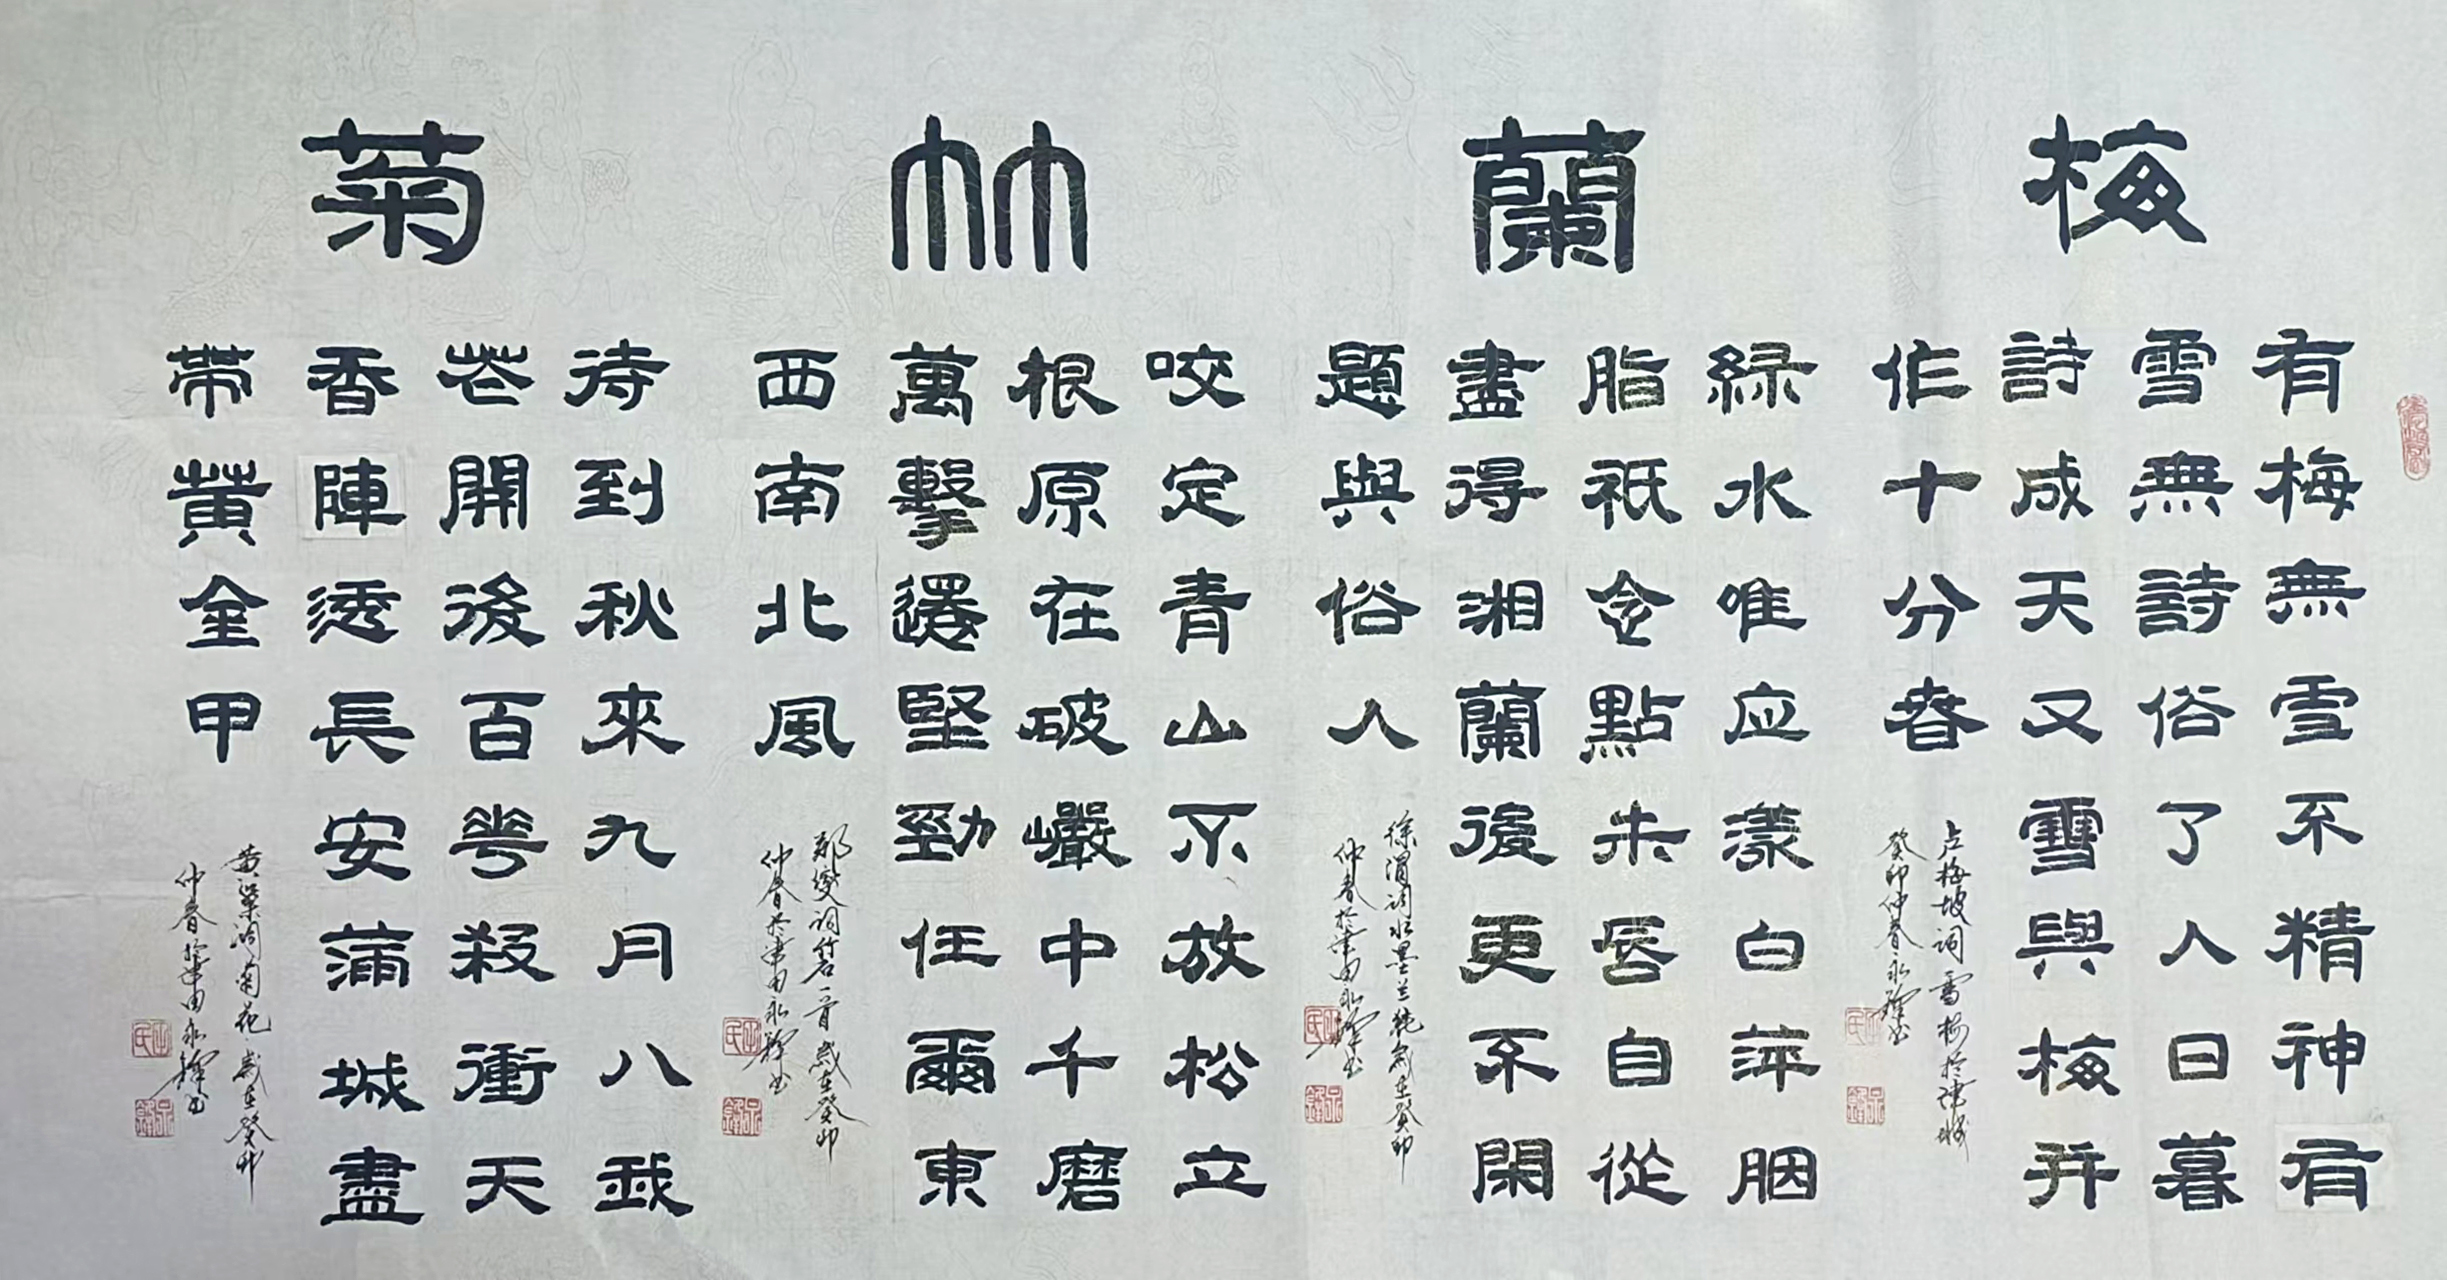 梅
有梅無雪不精神有
雪無詩俗了人日暮
詩成天又雪與梅并
作十分春
卢梅坡词雪梅於津城
癸卯仲春永鐸书
蘭
緑水唯应漾白萍胭
脂祇令點未唇自從
盡得湘蘭後更不閑
題與俗人
徐渭词水墨兰
歲在癸卯
仲春於津田永鐸书
竹
咬定青山不放松立
根原在破巖中千磨
萬擊還堅勁任爾東
西南北風
郑燮词竹石一首歲在癸卯
仲春於津田永鐸书
菊
待到秋來九月八我
花開後百花殺衝天
香陣透長安滿城盡
帶黄金甲
黄巢词菊花歲在癸卯
仲春於津田永鐸书